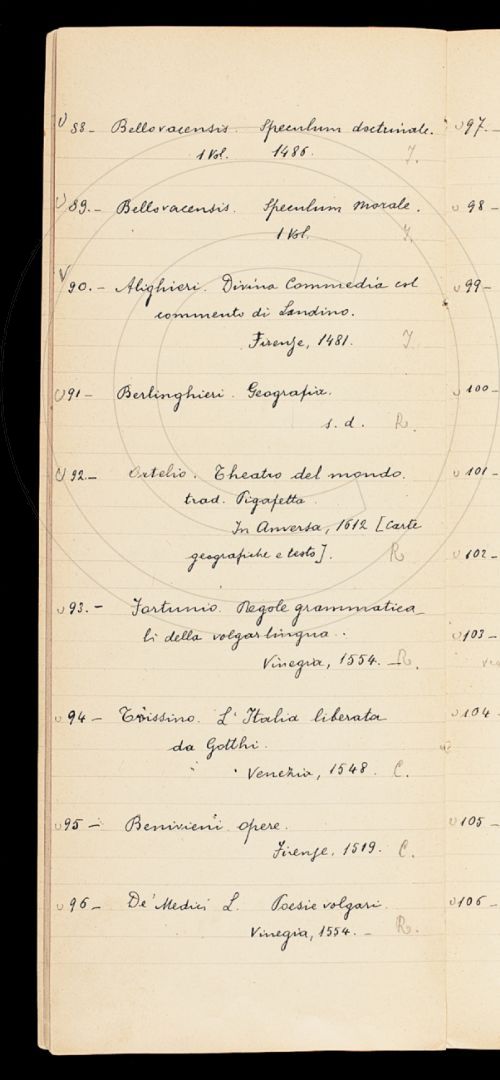 88 - Bellovacensis. Speculum doctrinale.
1 Vol. 1486. I.
89. - Bellovacensis. Speculum Morale.
1 Vol. I.
90. - Alighieri. Divina Commedia col
commento di Landino.
Firenze, 1481. I
91 - Berlinghieri. Geografia.
s. d. R.
92. - Ortelio. Theatro del mondo.
trad. Pigafetta.
In Anversa, 1612 [Carte
geografiche e testo]. R
93. - Fortunio. Regole grammatica_
li della volgar lingua..
Vinegia, 1554. - R.
94 - Trissino. L'Italia liberata
da Gotthi.
Venezia, 1548. C.
95 - Benivieni opere.
Firenze, 1519. C.
96 - De' Medici L. Poesie volgari.
Vinegia, 1554. - R.
97. -
98 -
99 -
100 -
101 -
102 -
103 -
104 -
105 -
106 -